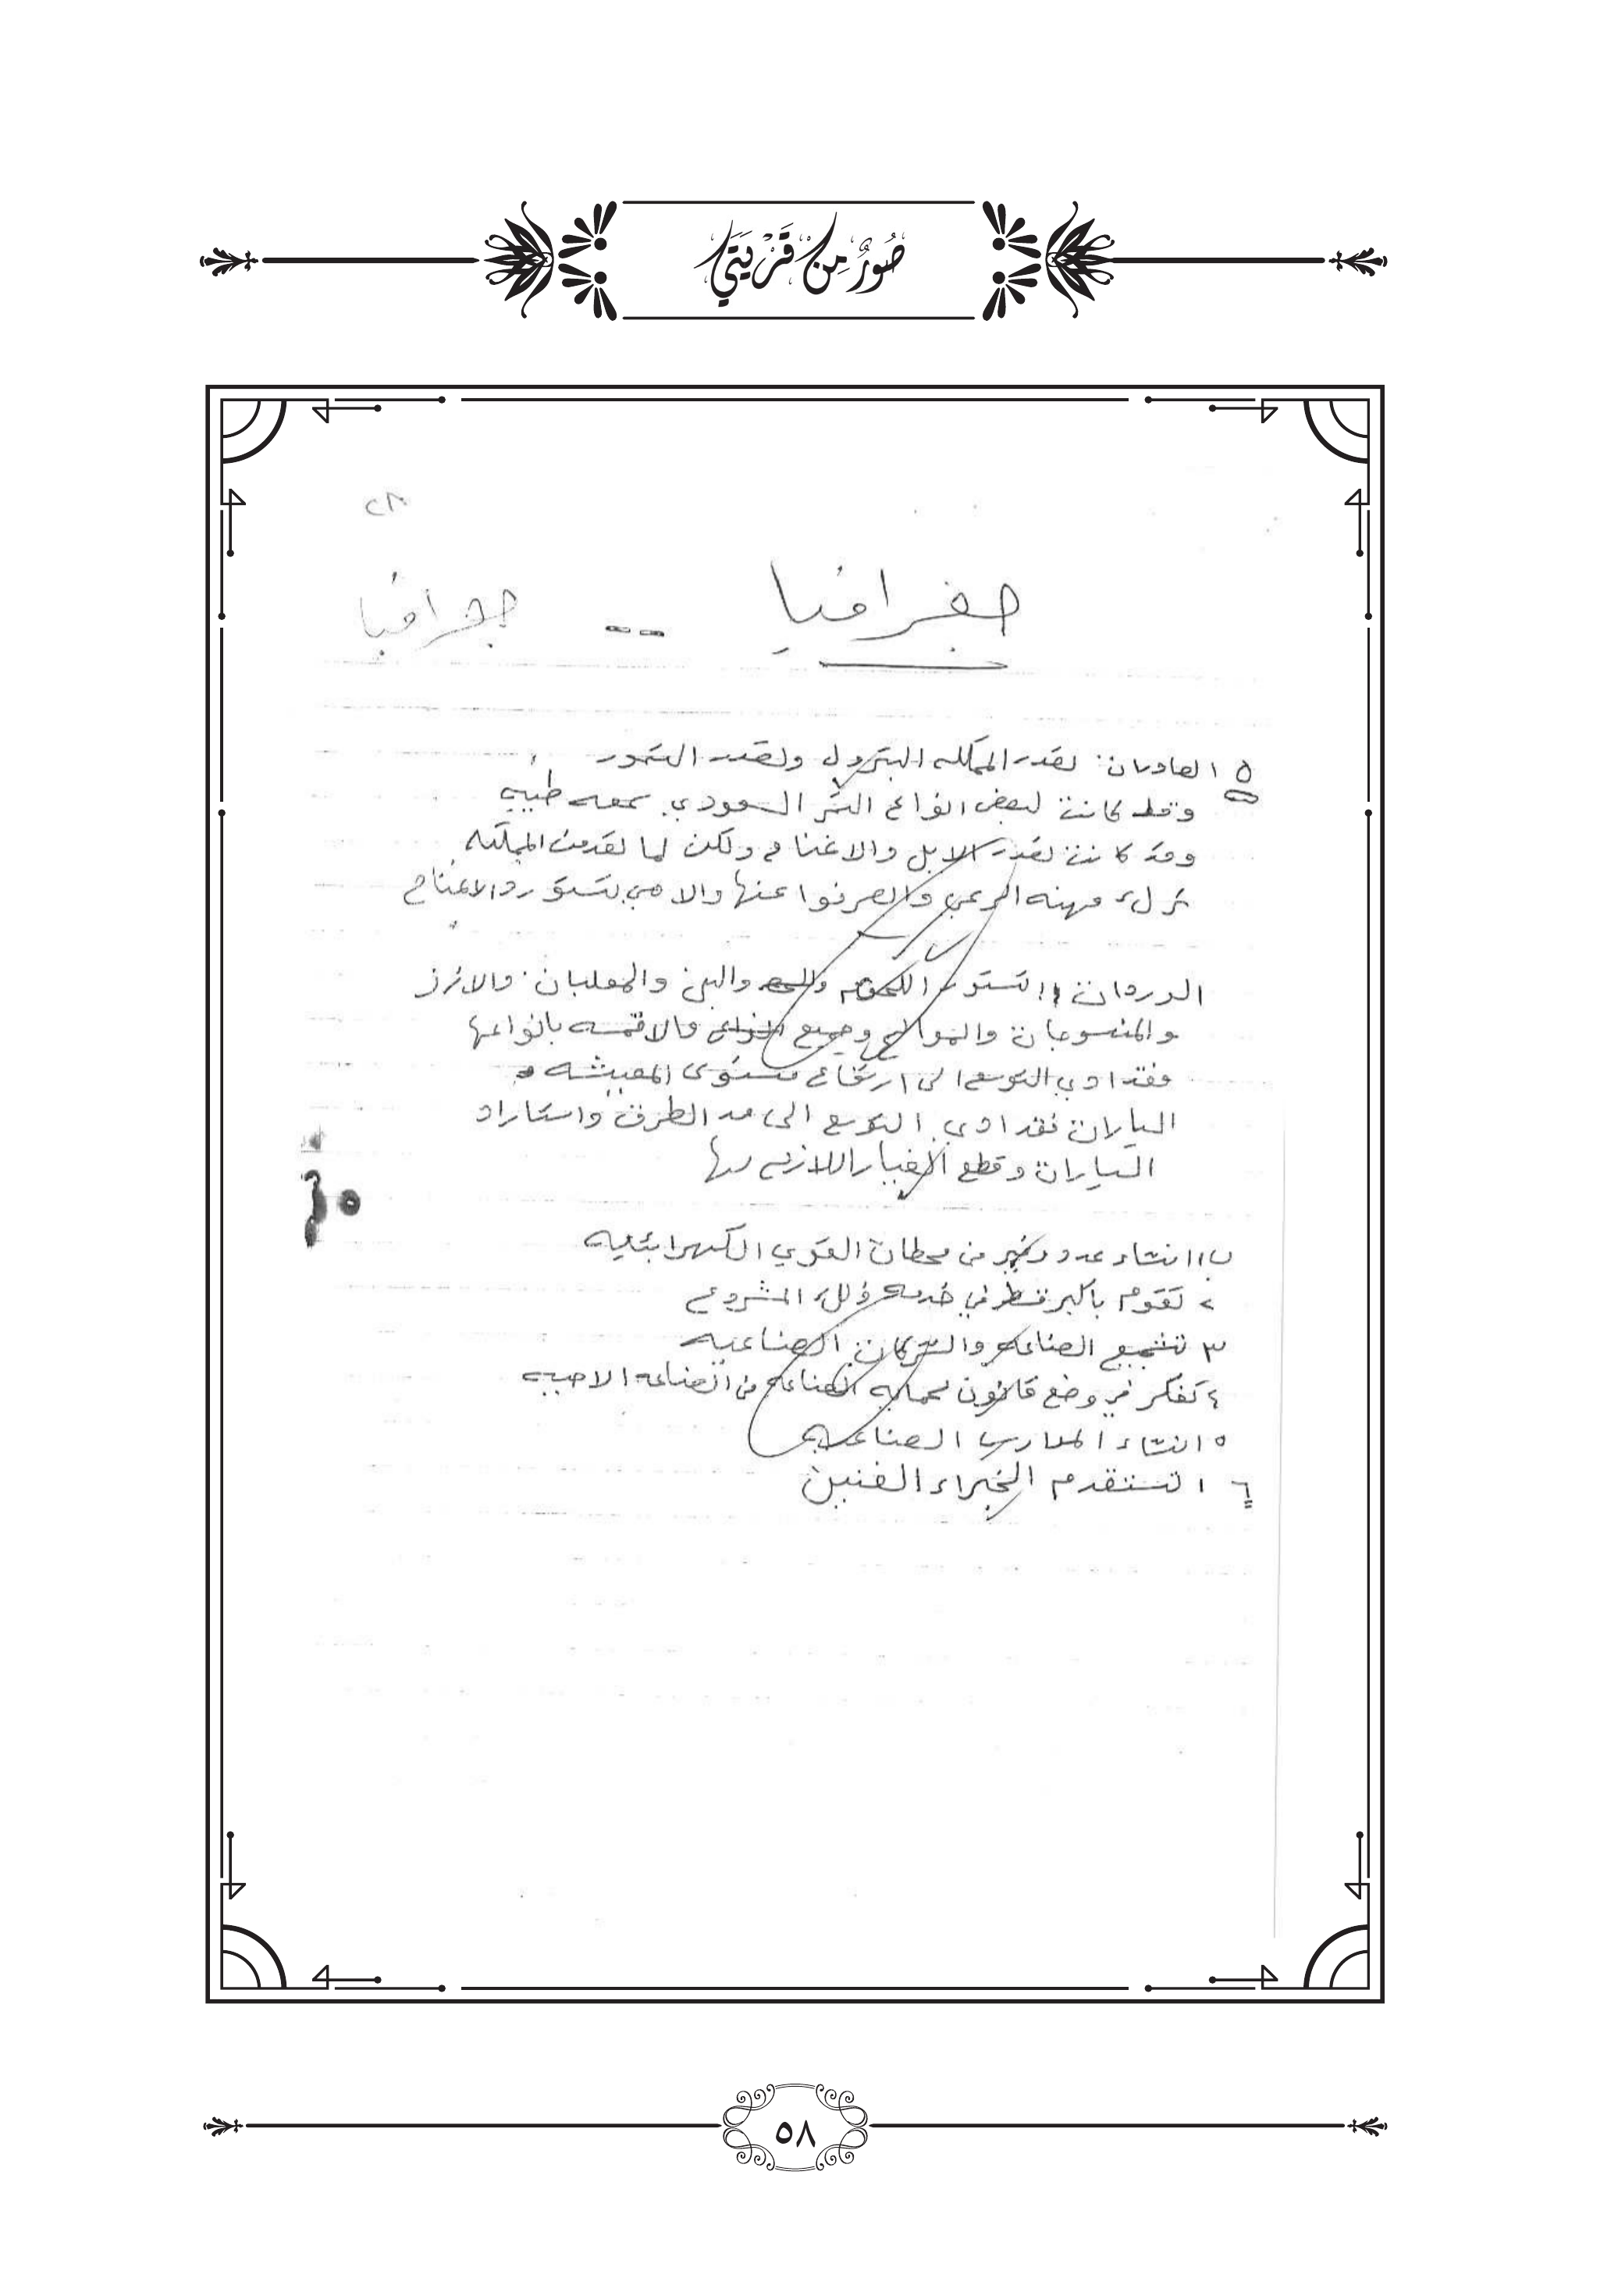 صُوَرٌ مِنْ قَرْيَتِي
٢٨
جغرافيا -- جغرافيا
٥ ١ الصادرات: تصدر المملكه البترول وتصدر التمور
وقد كانت لبعض انواع التمر السعودي سمعه طيبه
وقد كانت تصدر الابل والاغنام ولكن لما تقدمت المملكه
ترك مهنه الرعي وانصرفوا عنها والان هي تستورد الاغنام
الوردات !! تستورد اللحوم والبن والمعلبات والارز
والمنسوجات والموالح وجميع انواع والاقمشه بانواعها
فقد ادي التوسع الى ارتفاع مستوى المعيشه
السيارات فقد ادي التوسع الى مد الطرق واستراد
السيارات وقطع الغيار اللازمه لها
ب ١ انشاء عدد كبير من محطات القوي الكهرابئيه
٢ تقوم باكبر قسط في خدمه ذلك المشروع
٣ تشجيع الصناعه والشركات الصناعيه
٤ تفكر في وضع قانون لحمايه الصناعه من الصناعه الاجنبيه
٥ انشاء المدارس الصناعيه
٦ ا تستقدم الخبراء الفنين
٥٨